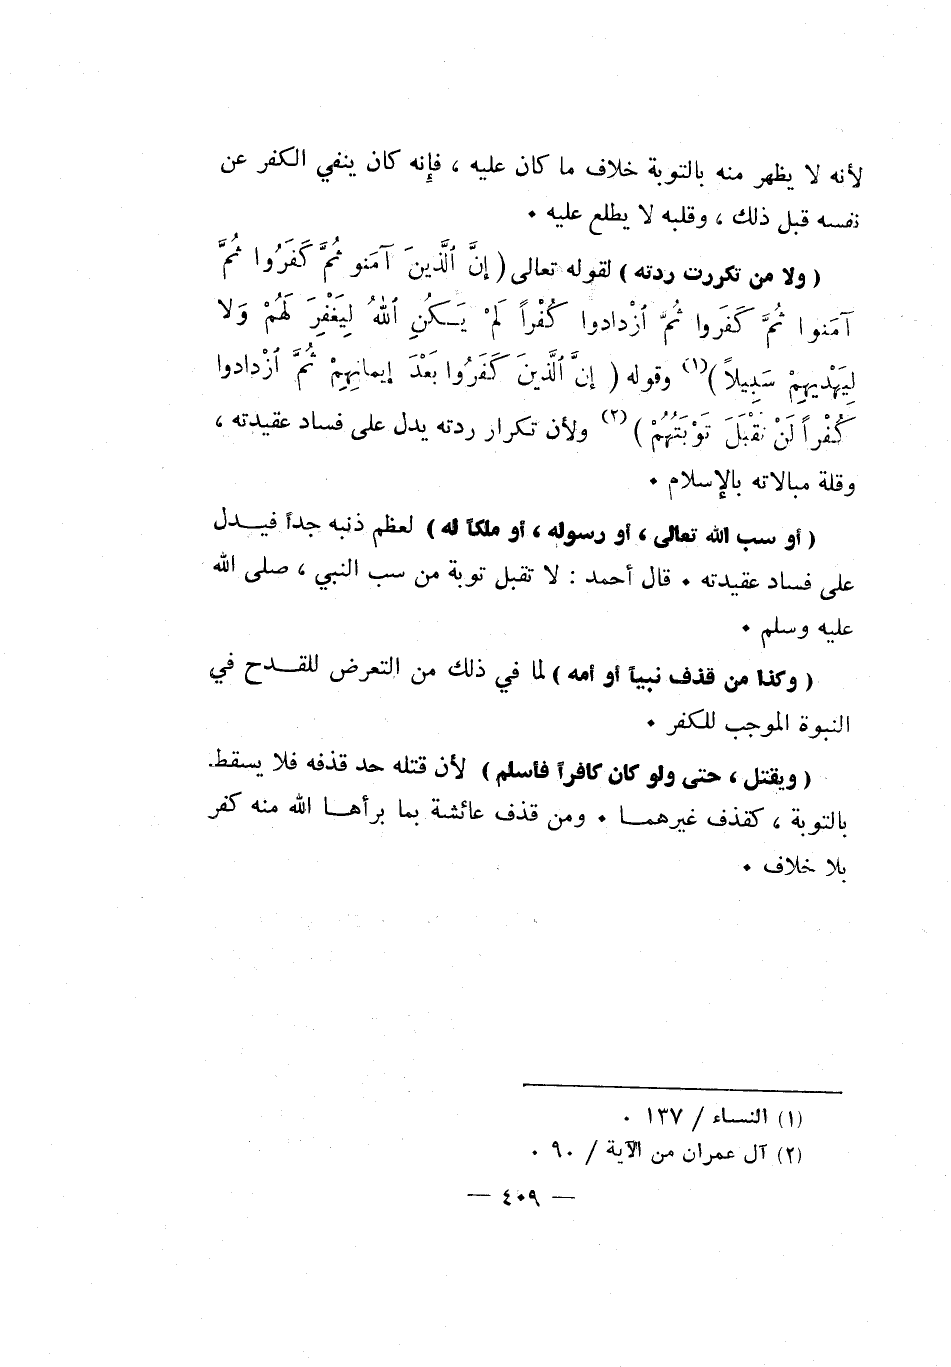 لأنه لا يظهر منه بالتوبة خلاف ما كان عليه ، فإنه كان ينفي الكفر عن
نفسه قبل ذلك ، وقلبه لا يطلع عليه .
( ولا من تكررت ردته ) لقوله تعالى ( إنَّ ٱلَّذينَ آمَنو ثُمَّ كَفَرُوا ثُمَّ
آمَنوا ثُمَّ كَفَروا ثُمَّ ٱزْدادوا كُفْراً لَمْ يَكُنِ ٱللهُ لِيَغْفِرَ لَهُمْ وَلا
لِيَهْدِيهِمْ سَبِيلاً )(١) وقوله ( إنَّ ٱلَّذينَ كَفَرُوا بَعْدَ إيمانِهِمْ ثُمَّ ٱزْدادوا
كُفْراً لَنْ تُقْبَلَ تَوْبَتُهُمْ )(٢) ولأن تكرار ردته يدل على فساد عقيدته ،
وقلة مبالاته بالإسلام .
( أو سب الله تعالى ، أو رسوله ، أو ملكاً له ) لعظم ذنبه جداً فيدل
على فساد عقيدته . قال أحمد : لا تقبل توبة من سب النبي ، صلى الله
عليه وسلم .
( وكذا من قذف نبياً أو أمه ) لما في ذلك من التعرض للقدح في
النبوة الموجب للكفر .
( ويقتل ، حتى ولو كان كافراً فأسلم ) لأن قتله حد قذفه فلا يسقط
بالتوبة ، كقذف غيرهما . ومن قذف عائشة بما برأها الله منه كفر
بلا خلاف .
(١) النساء / ١٣٧ .
(٢) آل عمران من الآية / ٩٠ .
— ٤٠٩ —